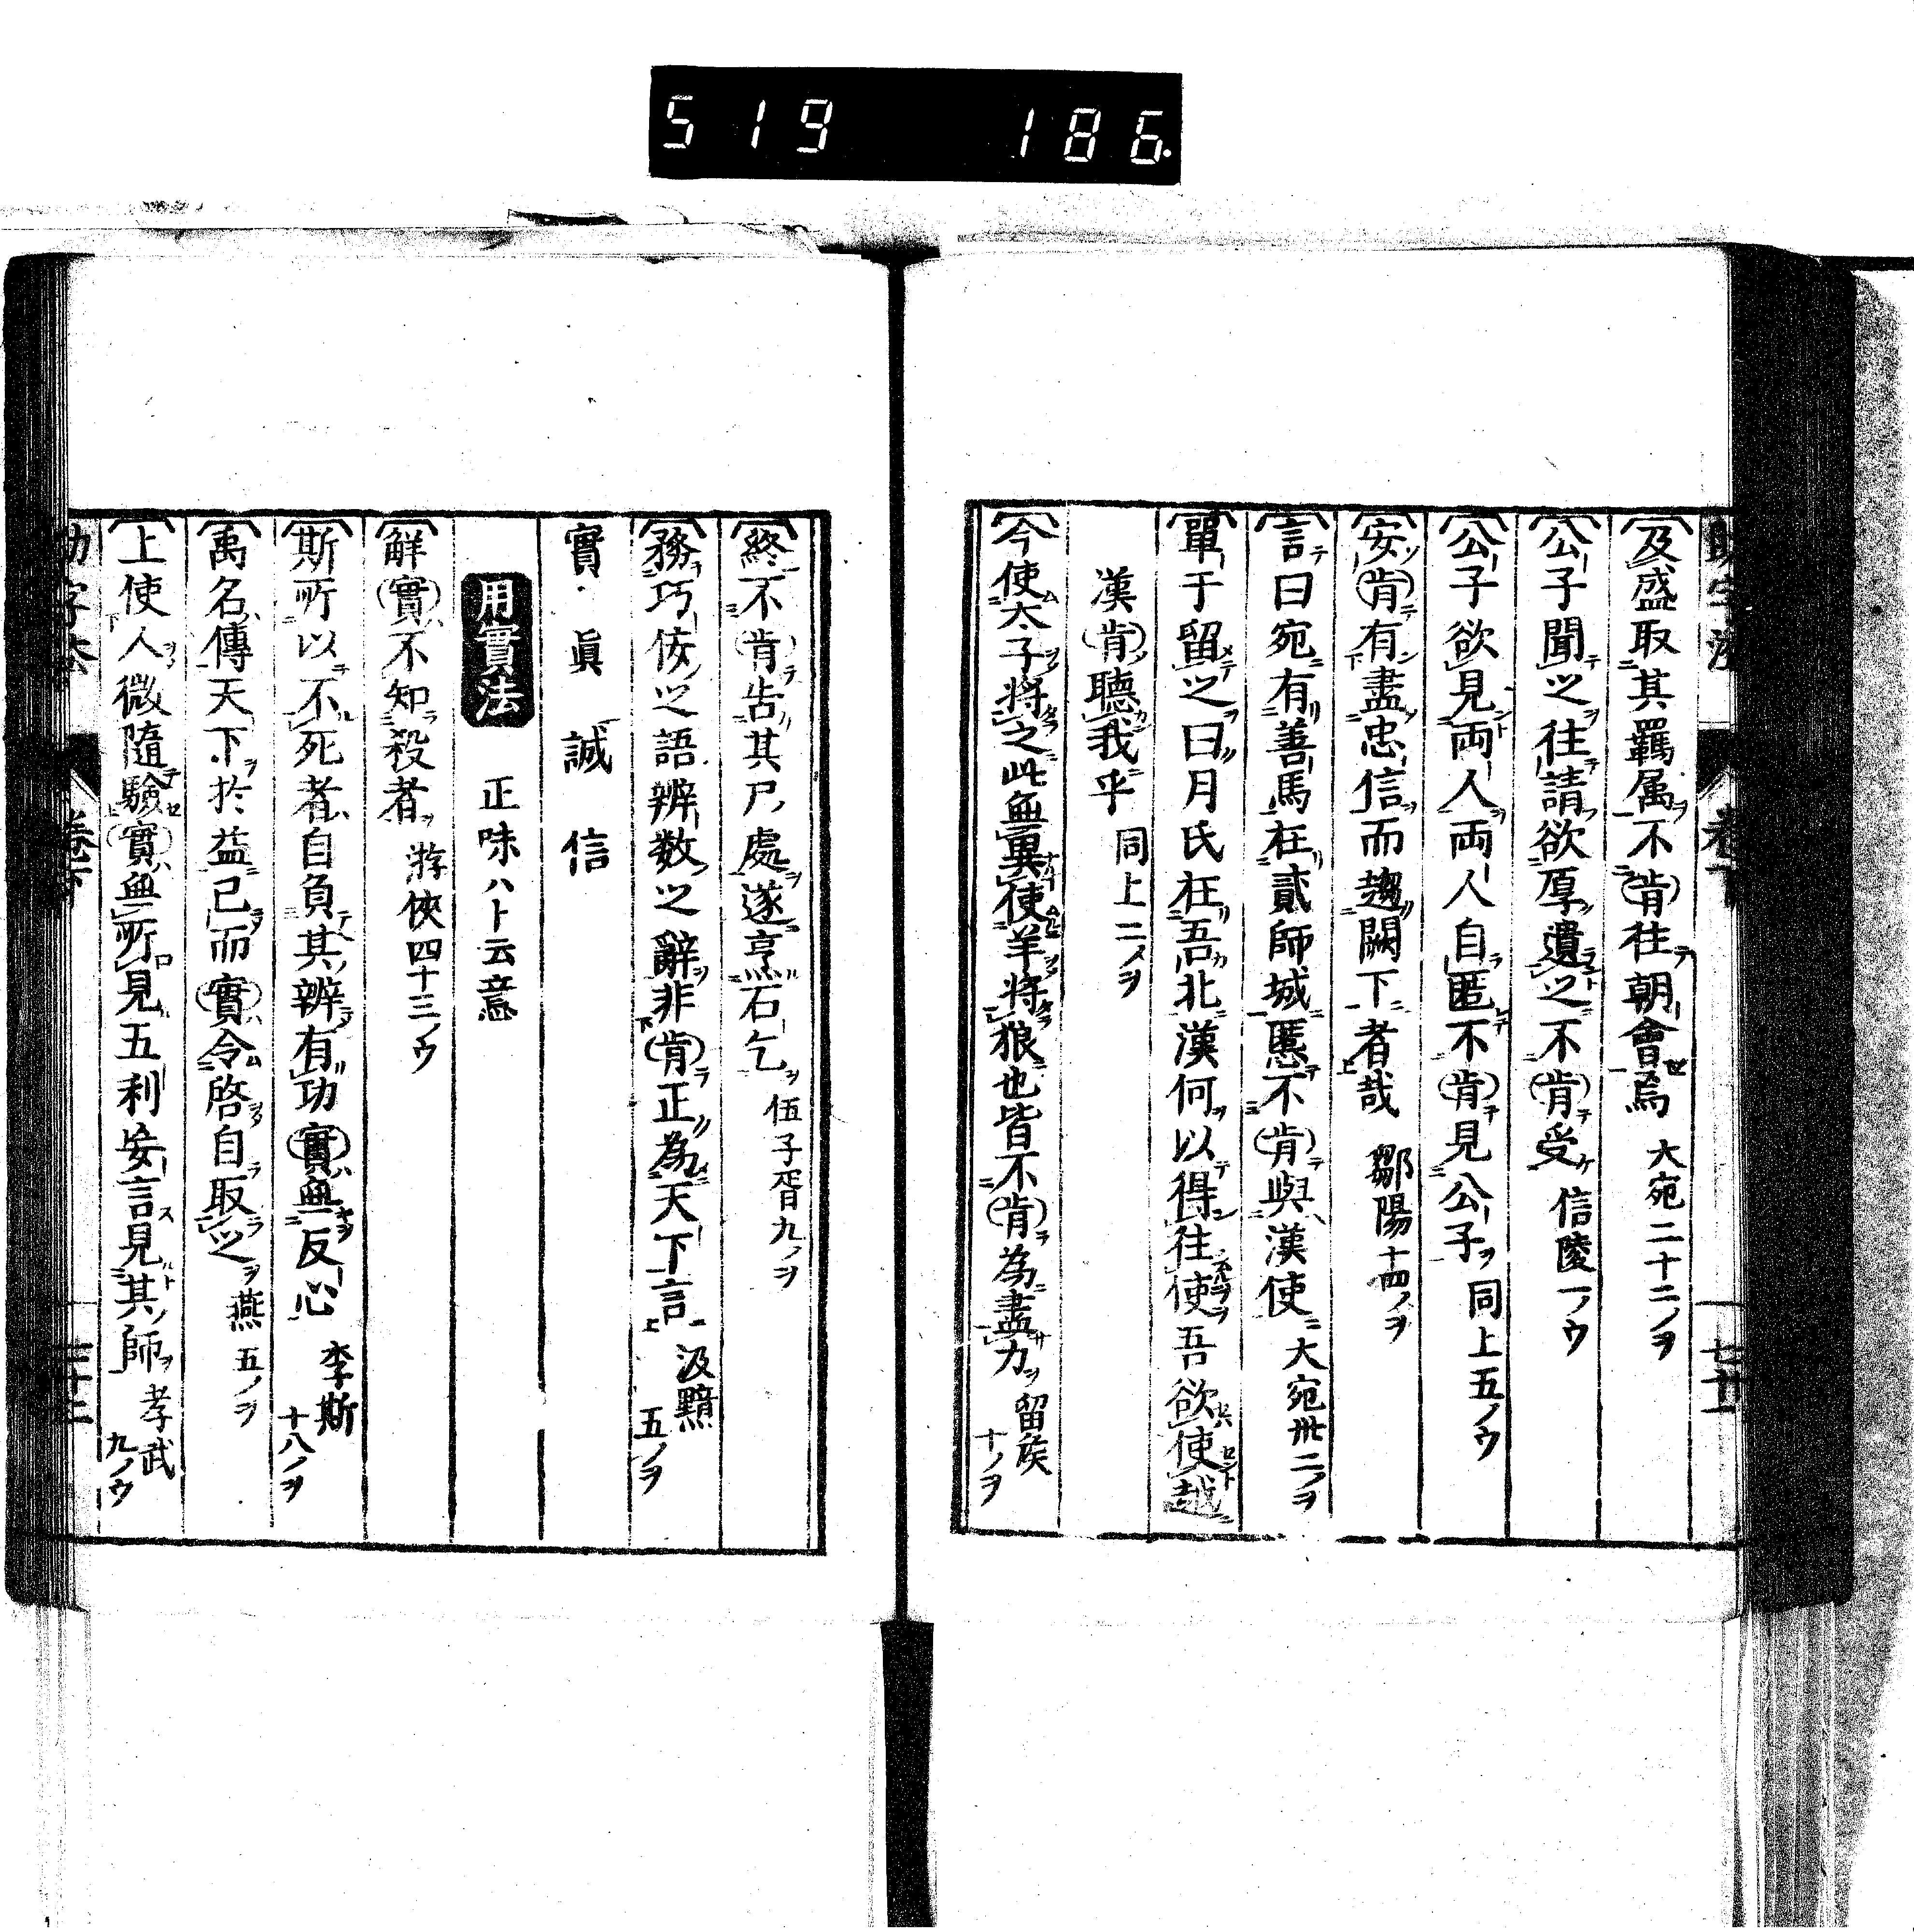 519 186
及盛取其羈属不肯往朝會焉 大宛二十二ノヲ
公子聞之往請欲厚遺之不肯受 信陵一ノウ
公子欲見両人両人自匿不肯見公子 同上五ノウ
安肯有盡忠信而趨闕下者哉 鄒陽十四ノヲ
言曰宛有善馬在貳師城匿不肯與漢使 大宛卅二ノヲ
單于留之曰月氏在吾北漢何以得往使吾欲使越
漢肯聽我乎 同上二ノヲ
今使太子將之此無異使羊將狼也皆不肯為盡力 留侯十ノヲ
終不肯告其尸處遂烹石乞 伍子胥九ノヲ
務巧佞之語辨数之辭非肯正為天下言 汲黯五ノヲ
實 眞 誠 信
用實法 正味ハト云意
解實不知殺者 游俠四十三ノウ
斯所以不死者自負其辨有功實無反心 李斯十八ノヲ
禹名傳天下於益已而實令啓自取之 燕五ノヲ
上使人微隨驗實無所見五利妄言見其師 孝武九ノウ